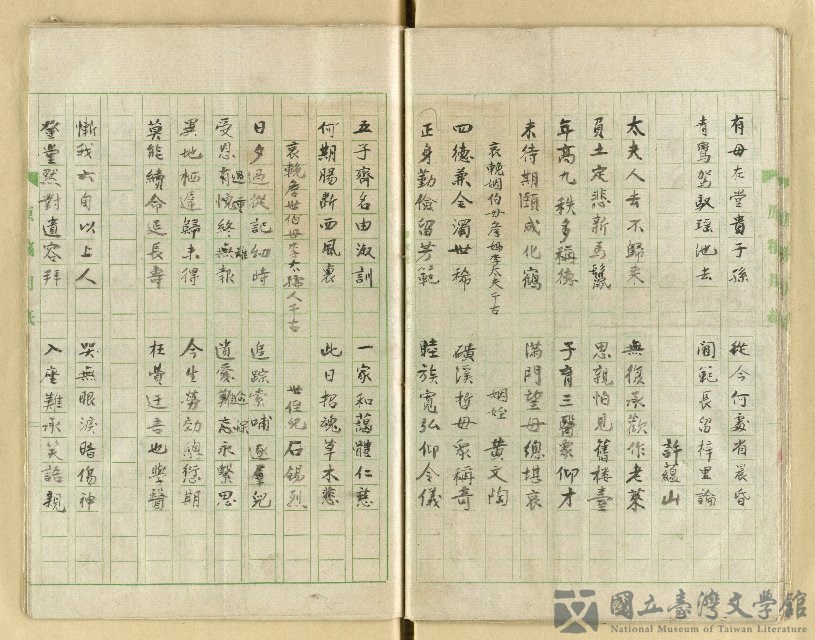 有母在堂貴子孫　從今何處省晨昏
青鸞駕馭瑶池去　閫範長留梓里論
許蘊山
太夫人去不歸來　無復承歡作老萊
負土定悲新馬鬣　思親怕見舊樓臺
年高九秩多稱德　子育三醫眾仰才
未待期頤成化鶴　滿門望母總堪哀
哀輓姻伯母詹媽李太夫千古　姻姪　黄文陶
四德兼全濁世稀　磺溪哲母眾稱奇
正身勤儉留芳範　睦族寬弘仰令儀
五子齊名由淑訓　一家和藹體仁慈
何期腸斷西風裏　此日招魂草木悲
哀輓詹世伯母李太孺人千古　世侄兒　石錫烈
日夕過從記幼時　追踪索哺逐羣兒
受恩有愧終無報　遺愛難忘永繫思
異地栖遲歸未得　今生劳効總愆期
莫能續命延長壽　枉費迂吾也學醫
慚我六旬以上人　哭無眼淚暗傷神
登堂默對遺容拜　入座難承笑語親
國立臺灣文學館
National Museum of Taiwan Literature